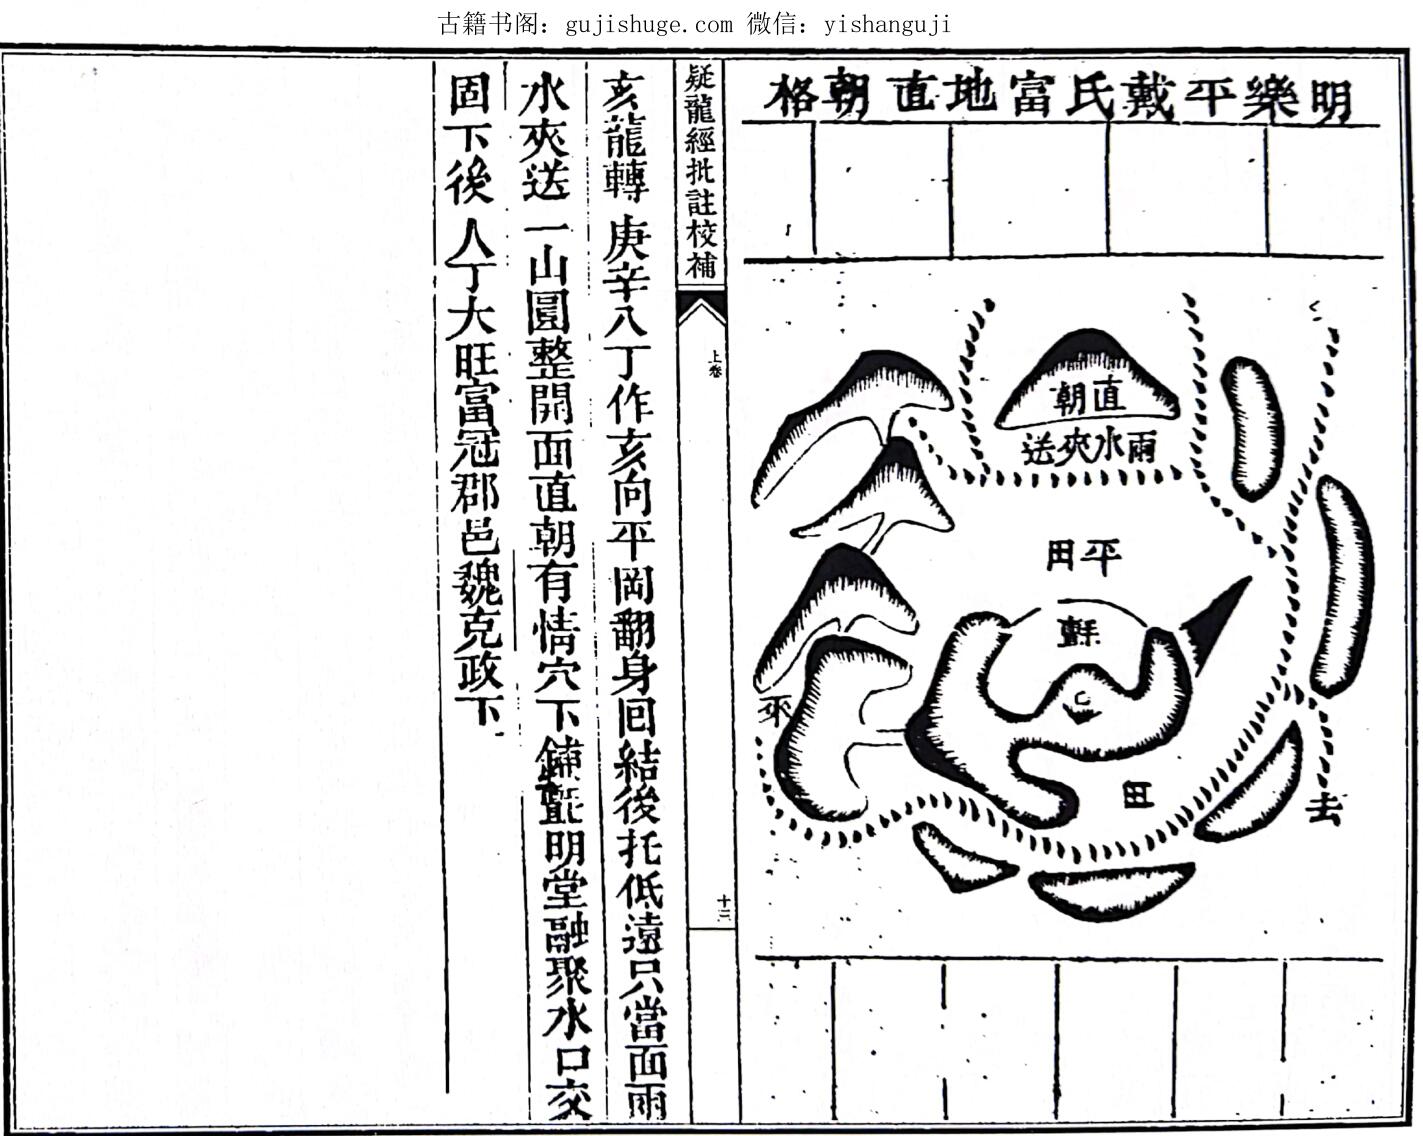 古籍书阁：gujishuge.com 微信：yishanguji
明樂平戴氏富地直朝格
直朝
兩水夾送
平田
氈
田
來
去
疑龍經批註校補
上卷
十三
亥龍轉庚辛八丁作亥向平岡翻身回結後托低遠只當面兩
水夾送一山圓整開面直朝有情穴下鋪氈明堂融聚水口交
固下後人丁大旺富冠郡邑魏克政下